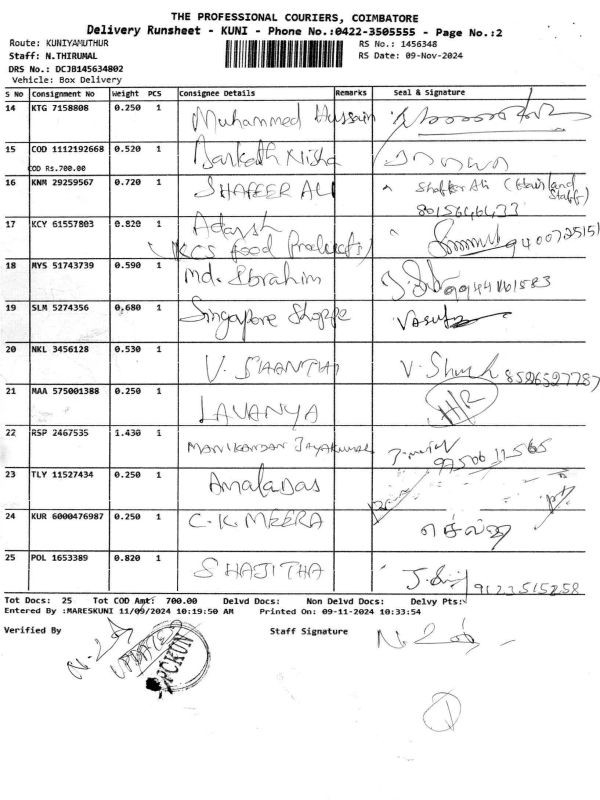 THE PROFESSIONAL COURIERS, COIMBATORE
Delivery Runsheet - KUNI - Phone No.:0422-3505555 - Page No.:2
Route: KUNIYAMUTHUR RS No.: 1456348
Staff: N.THIRUMAL RS Date: 09-Nov-2024
DRS No.: DCJB145634802
Vehicle: Box Delivery
S No Consignment No Weight PCS Consignee Details Remarks Seal & Signature
14 KTG 7158808 0.250 1 Muhammed Hussain
15 COD 1112192668 0.520 1 Barkath Nisha
COD Rs.700.00
16 KNM 29259567 0.720 1 SHAFEER ALI Shaffer Ali (Hair land Staff)
8015646433
17 KCY 61557803 0.820 1 Adarsh
(KCS food Products) 9400725151
18 MYS 51743739 0.590 1 Md. Ibrahim
19 SLM 5274356 0.680 1 Singapore Shoppe
20 NKL 3456128 0.530 1 V. SHANTHI 8526527787
21 MAA 575001388 0.250 1 LAVANYA H/R
22 RSP 2467535 1.430 1 MANIKANDAN JAYAKUMAR
23 TLY 11527434 0.250 1 Amaladas
24 KUR 6000476987 0.250 1 C.K. MEERA
25 POL 1653389 0.820 1 SHAJITHA 9123515258
Tot Docs: 25 Tot COD Amt: 700.00 Delvd Docs: Non Delvd Docs: Delvy Pts:
Entered By :MARESKUNI 11/09/2024 10:19:50 AM Printed On: 09-11-2024 10:33:54
Verified By Staff Signature
UPDATED
PCKUN